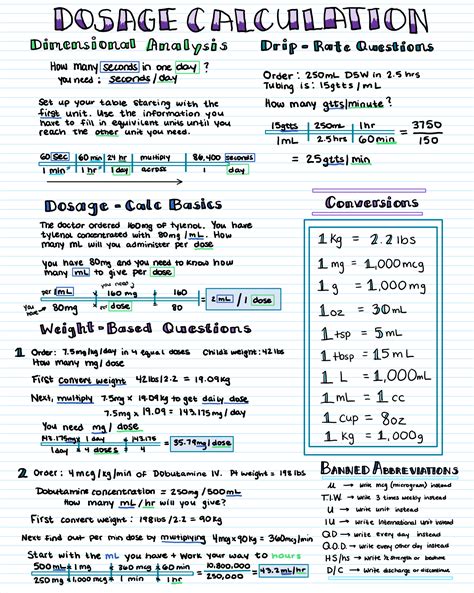 DOSAGE CALCULATION
Dimensional Analysis
How many seconds in one day?
you need: seconds/day
Set up your table starting with the
first unit. Use the information you
have to fill in equivilent units until you
reach the other unit you need.
60 sec | 60 min | 24 hr | multiply | 86,400 seconds
1 min | 1 hr | 1 day | across | 1 day
Drip-Rate Questions
Order: 250mL D5W in 2.5 hrs
Tubing is: 15gtts/mL
How many gtts/minute?
15gtts | 250mL | 1hr = 3750
1mL | 2.5hrs | 60min 150
= 25gtts/min
Dosage-Calc Basics
The doctor ordered 160mg of tylenol. You have
tylenol concentrated with 80mg/mL. How
many ml will you administer per dose
you have 80mg and you need to know how
many mL to give per dose
you need
per mL x 160 mg = 160 = 2 mL / 1 dose
you have 80mg x per dose 80
Conversions
1 kg = 2.2 lbs
1 mg = 1,000mcg
1 g = 1,000 mg
1 oz = 30mL
1 tsp = 5mL
1 tbsp = 15mL
1 L = 1,000mL
1 mL = 1 cc
1 cup = 8oz
1 kg = 1,000g
Weight-Based Questions
1 Order: 7.5mg/kg/day in 4 equal doses Child's weight: 42lbs
How many mg/dose
First convert weight 42lbs/2.2 = 19.09kg
Next, multiply 7.5mg x 19.09kg to get daily dose
7.5mg x 19.09 = 143.175mg/day
You need mg/dose
143.175mg | 1 day = 143.175 = 35.79mg/dose
1 day | 4 doses 4
2 Order: 4mcg/kg/min of Dobutamine IV. Pt weight = 198lbs
Dobutamine concentration = 250mg/500mL
How many mL/hr will you give?
First convert weight: 198lbs/2.2 = 90kg
Next find out per min dose by multiplying 4mcg x 90kg = 360mcg/min
Start with the mL you have + work your way to hours
500mL | 1mg | 360mcg | 60min = 10,800,000 = 43.2mL/hr
250mg | 1,000mcg | 1min | 1hr 250,000
BANNED ABBREVIATIONS
µ → write mcg (microgram) instead
T.I.W. → write 3 times weekly instead
U → write unit instead
IU → write International Unit instead
QD → write every day instead
Q.O.D. → write every other day instead
HS/hs → write ½ strength or bedtime
D/C → write discharge or discontinue